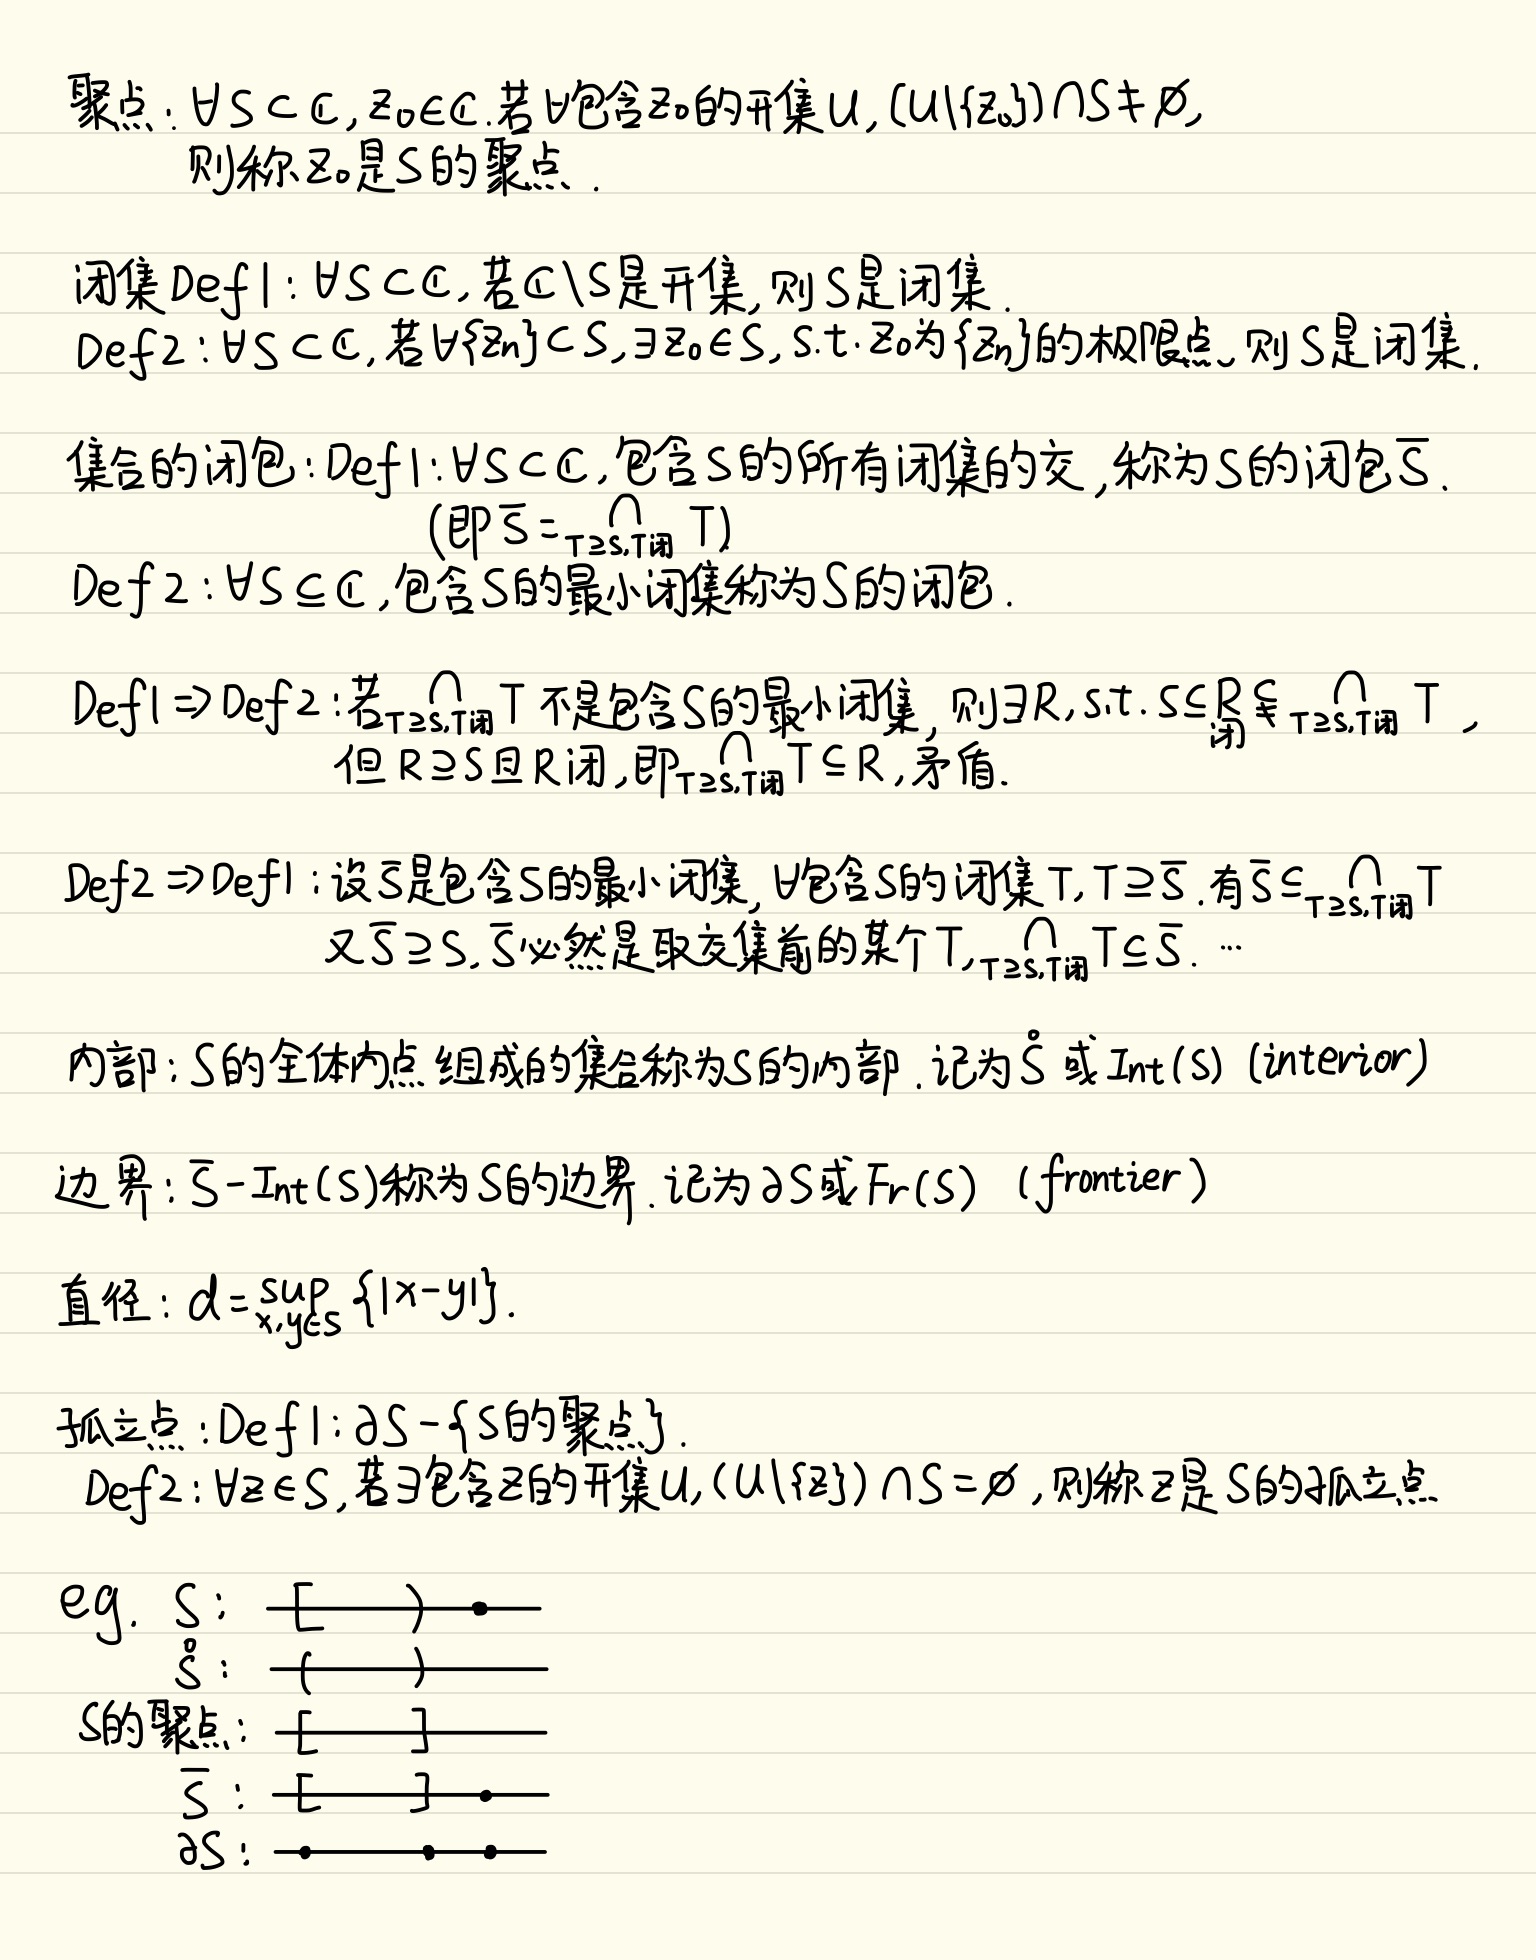 聚点：∀S⊂ℂ, z₀∈ℂ. 若∀包含z₀的开集U, (U\{z₀})∩S≠∅,
则称z₀是S的聚点.
闭集Def1：∀S⊂ℂ, 若ℂ\S是开集, 则S是闭集.
Def2：∀S⊂ℂ, 若∀{zₙ}⊂S, ∃z₀∈S, s.t. z₀为{zₙ}的极限点, 则S是闭集.
集合的闭包：Def1：∀S⊂ℂ, 包含S的所有闭集的交, 称为S的闭包S̄.
(即S̄=∩_{T⊇S,T闭} T)
Def2：∀S⊆ℂ, 包含S的最小闭集称为S的闭包.
Def1⇒Def2：若∩_{T⊇S,T闭} T 不是包含S的最小闭集, 则∃R, s.t. S⊆R(闭)⊊∩_{T⊇S,T闭} T,
但R⊇S且R闭, 即∩_{T⊇S,T闭} T⊆R, 矛盾.
Def2⇒Def1：设S̄是包含S的最小闭集, ∀包含S的闭集T, T⊇S̄. 有S̄⊆∩_{T⊇S,T闭} T
又S̄⊇S, S̄必然是取交集前的某个T, ∩_{T⊇S,T闭} T⊆S̄. …
内部：S的全体内点组成的集合称为S的内部. 记为S̊ 或 Int(S) (interior)
边界：S̄-Int(S)称为S的边界. 记为∂S或Fr(S) (frontier)
直径：d=sup_{x,y∈S}{|x-y|}.
孤立点：Def1：∂S-{S的聚点}.
Def2：∀z∈S, 若∃包含z的开集U, (U\{z})∩S=∅, 则称z是S的孤立点
eg. S：
S̊：
S的聚点：
S̄：
∂S：